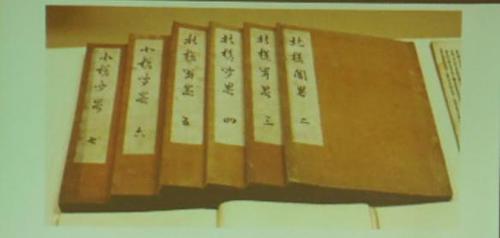 北槎聞畧 二
北槎聞畧 三
北槎聞畧 四
北槎聞畧 五
北槎聞畧 六
北槎聞畧 七